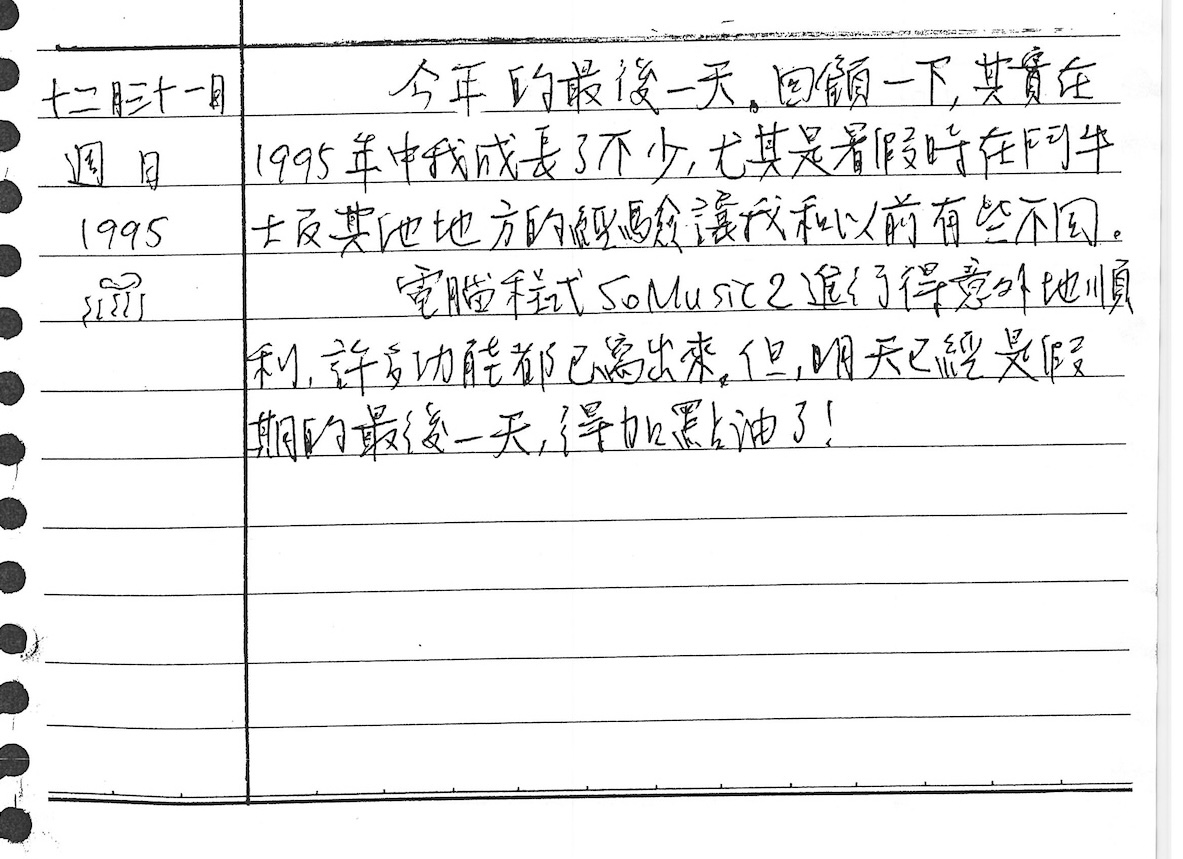 十二月三十一日
週日
1995
今年的最後一天。回顧一下,其實在
1995年中我成長了不少,尤其是暑假時在鬥牛
士及其他地方的經驗讓我和以前有些不同。
電腦程式SoMusic2進行得意外地順
利,許多功能都已寫出來。但,明天已經是假
期的最後一天,得加點油了!